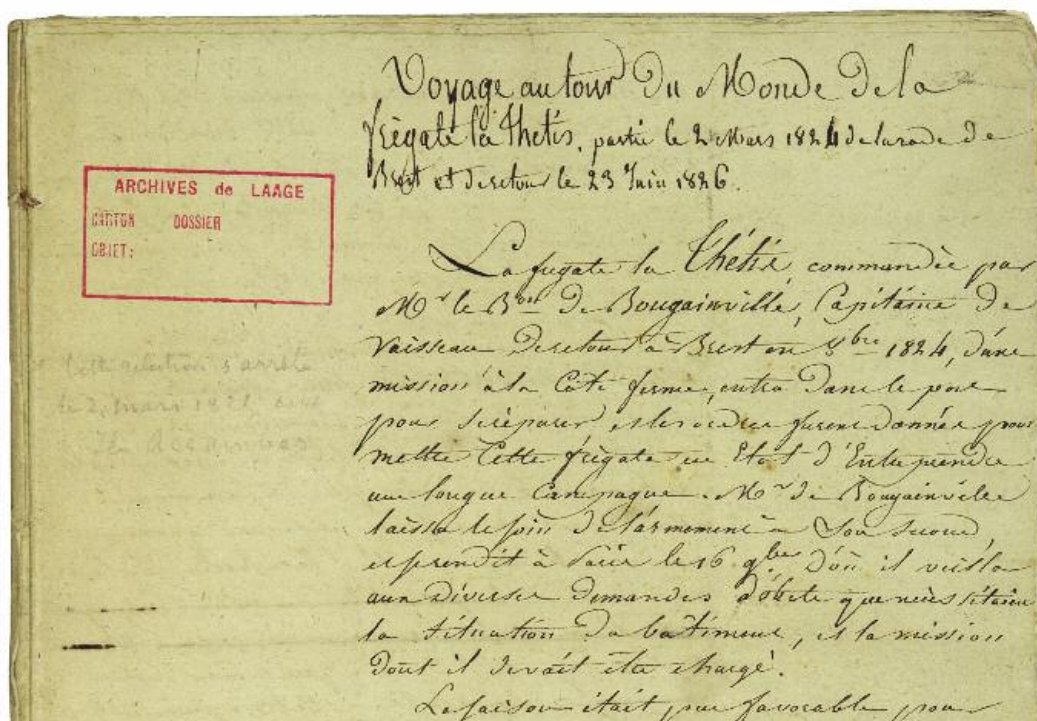 Voyage autour Du Monde De la
frégate la Thétis, partie le 2 Mars 1824 de la rade de
Brest et de retour le 23 Juin 1826.
ARCHIVES de LAAGE
CARTON DOSSIER
OBJET:
La frégate la Thétis, commandée par
Mr le Bon De Bougainville, Capitaine De
Vaisseau De retour à Brest en 8bre 1824, d'une
mission à la Côte ferme, entra Dans le port
pour se réparer, et les ordres furent donnés pour
mettre Cette frégate en Etat d'Entreprendre
une longue Campagne. Mr de Bougainville
laissa le soin de l'armement à Son second,
et se rendit à Paris le 16 9bre D'où il veilla
aux Diverses demandes d'objets que nécessitaient
la situation Du bâtiment, et la mission
Dont il devait être chargé.
La saison était peu favorable pour
Cette relation s'arrête
le 2, mars